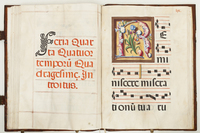 Feria Quar
ta Quatuor
temporũ Qua
dragesime. In
troitus.
R E
mi
niscere misera
tionũ tua rũ